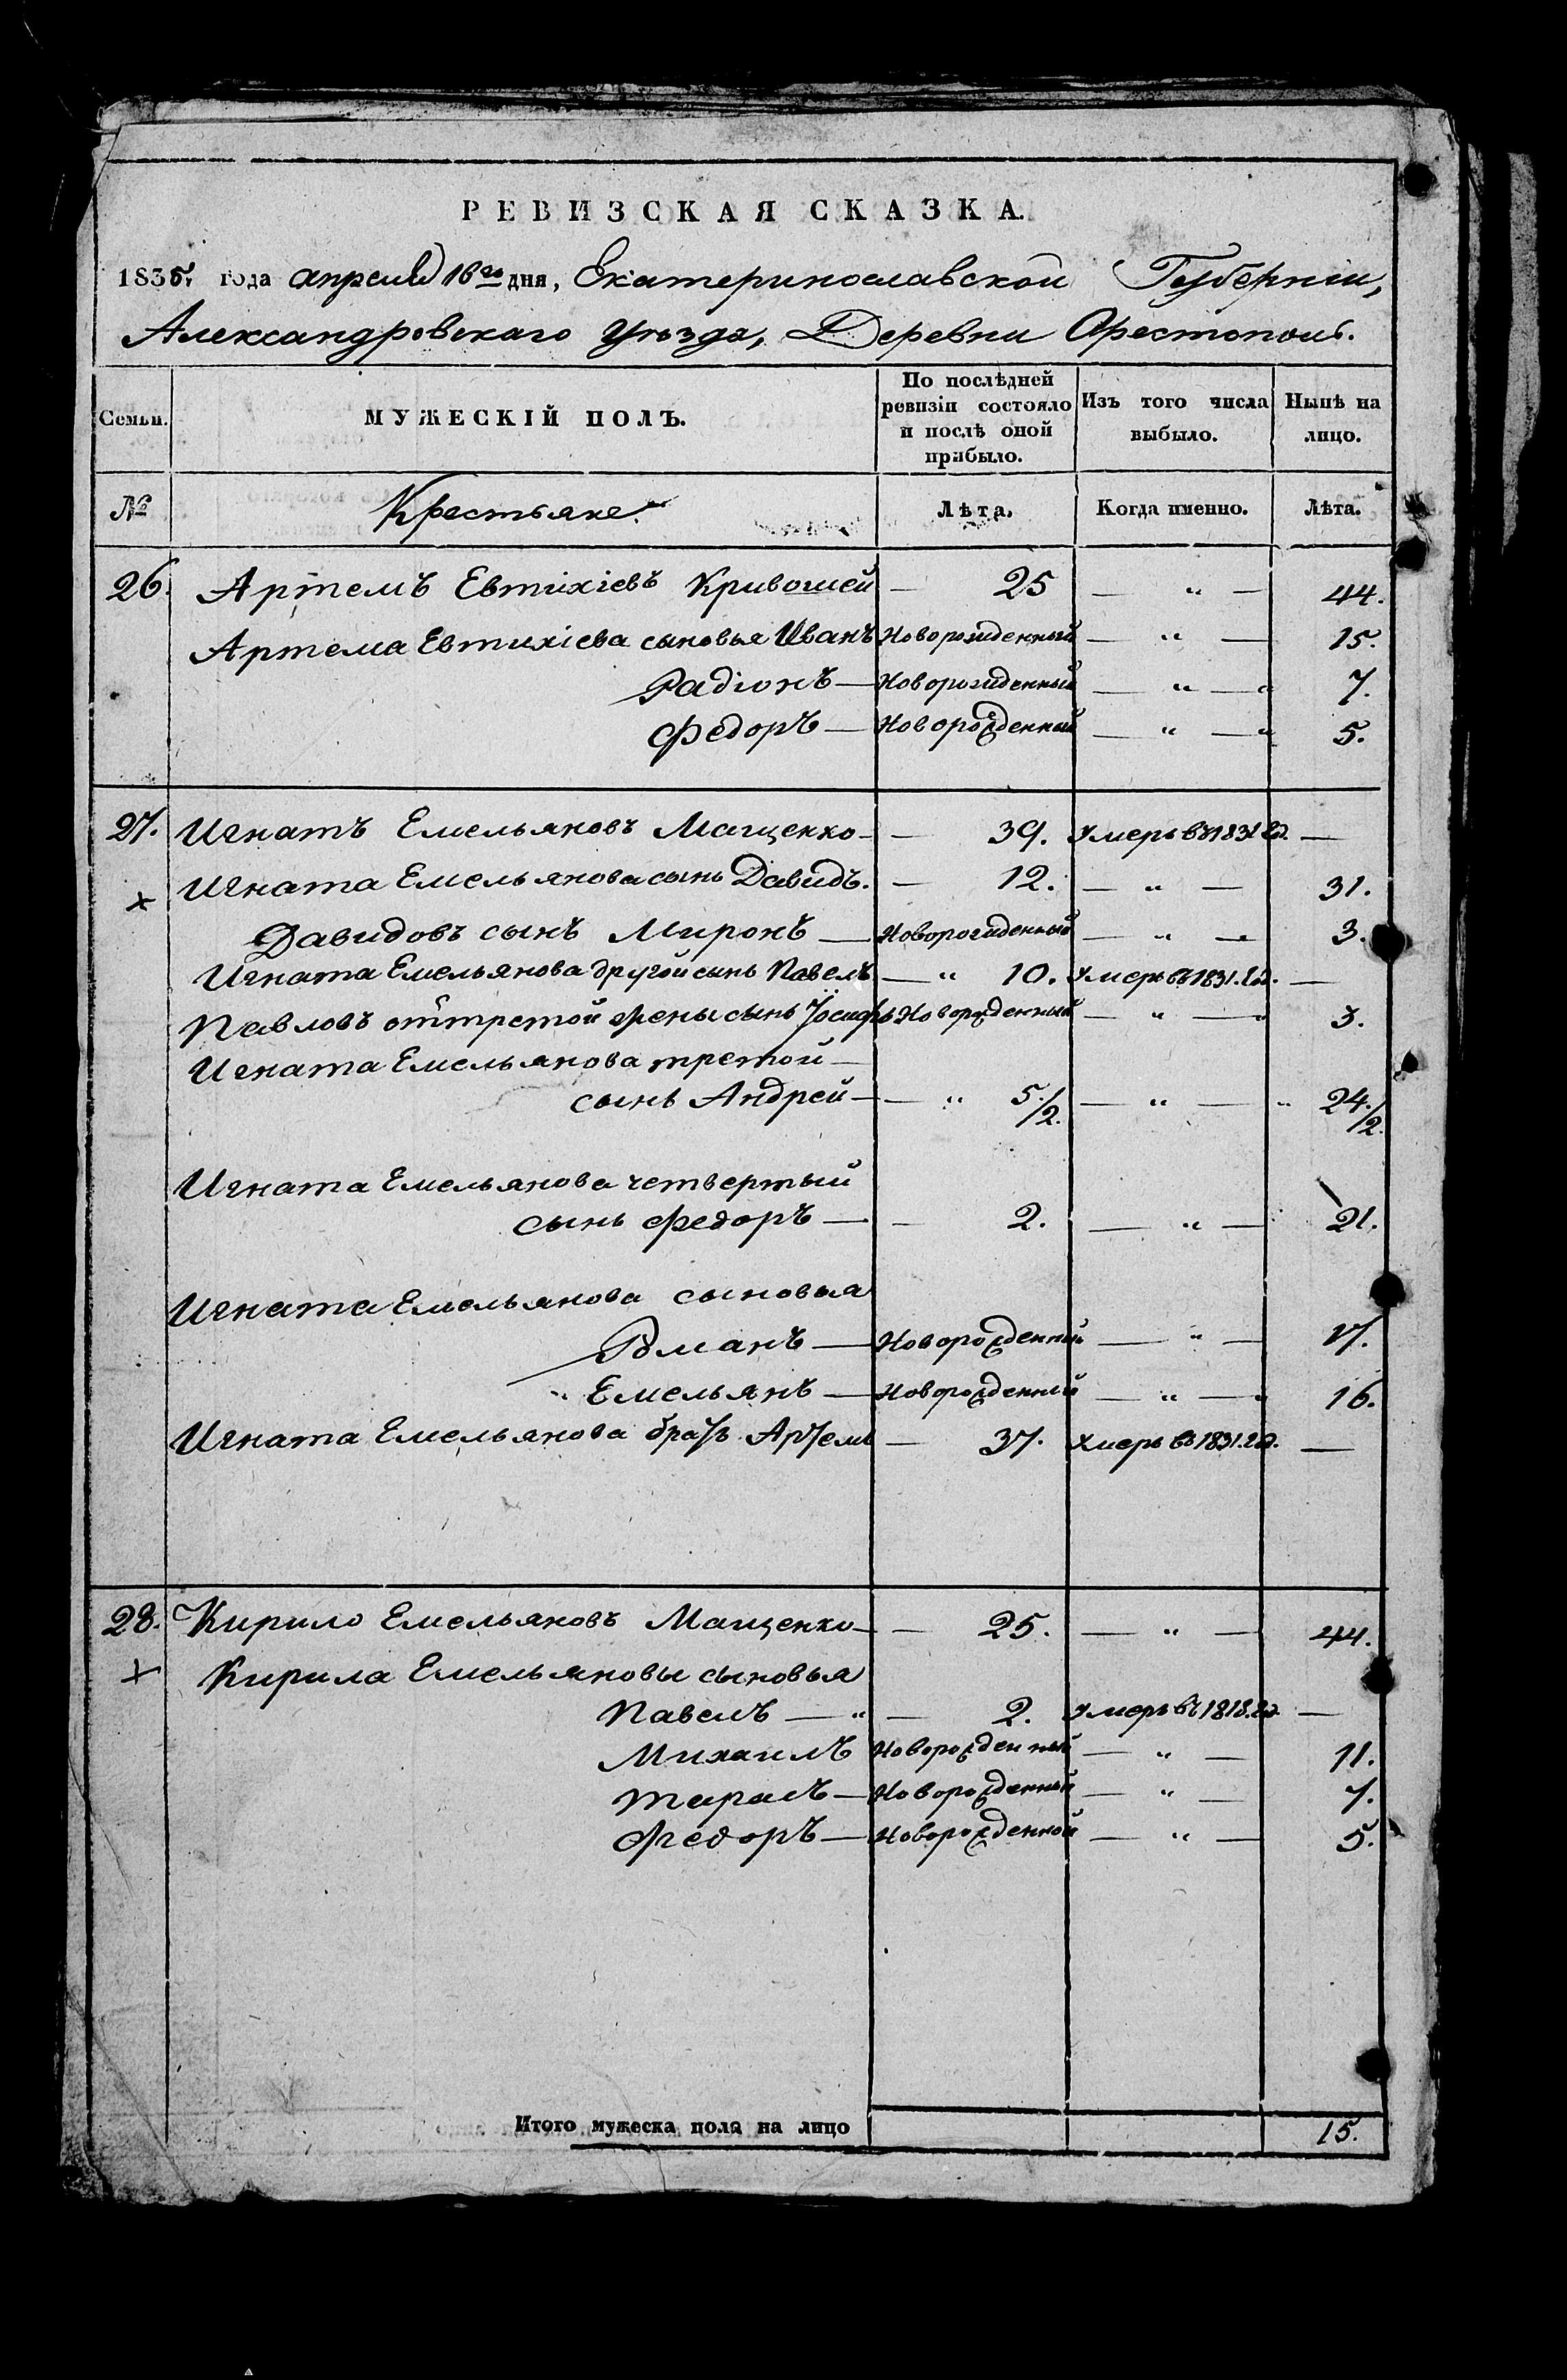 РЕВИЗСКАЯ СКАЗКА.
1835. года апреля 16го дня, Екатеринославской Губерніи,
Александровскаго Уѣзда, Деревни Орестополь.
Семьи. МУЖЕСКІЙ ПОЛЪ. По послѣдней ревизіи состояло и послѣ оной прибыло. Изъ того числа выбыло. Нынѣ на лицо.
№ Крестьяне. Лѣта. Когда именно. Лѣта.
26. Артемъ Евтихіевъ Кривошей — 25 — " — 44.
Артема Евтихіева сыновья Иванъ Новорожденный — " — 15.
Радіонъ — Новорожденный — " — " 7.
Федоръ — Новорожденный — " — " 5.
27. Игнатъ Емельяновъ Мащенко — — 39. Умеръ въ 1831 год. —
× Игната Емельянова сынъ Давидъ. — 12. — " — 31.
Давидовъ сынъ Миронъ — Новорожденный — " — 3.
Игната Емельянова другой сынъ Павелъ — " 10. Умеръ въ 1831. год. —
Павловъ от третой жены сынъ Іосифъ Новорожденный — " — " 3.
Игната Емельянова третой —
сынъ Андрей — — " 5./2. — " — " 24./2.
Игната Емельянова четвертый
сынъ Федоръ — — 2. — " — 21.
Игната Емельянова сыновья
Романъ — Новорожденный — " — 17.
" Емельянъ — Новорожденный — " — " 16.
Игната Емельянова братъ Артемъ — 37. Умеръ въ 1831. год. —
28. Кирило Емельяновъ Мащенко — — 25. — " — 44.
× Кирила Емельяновы сыновья
Павелъ — " — 2. Умеръ въ 1818. год. —
Михаилъ Новорожденный — " — 11.
Тарасъ — Новорожденный — " — 7.
Федоръ — Новорожденной — " — 5.
Итого мужеска пола на лицо 15.